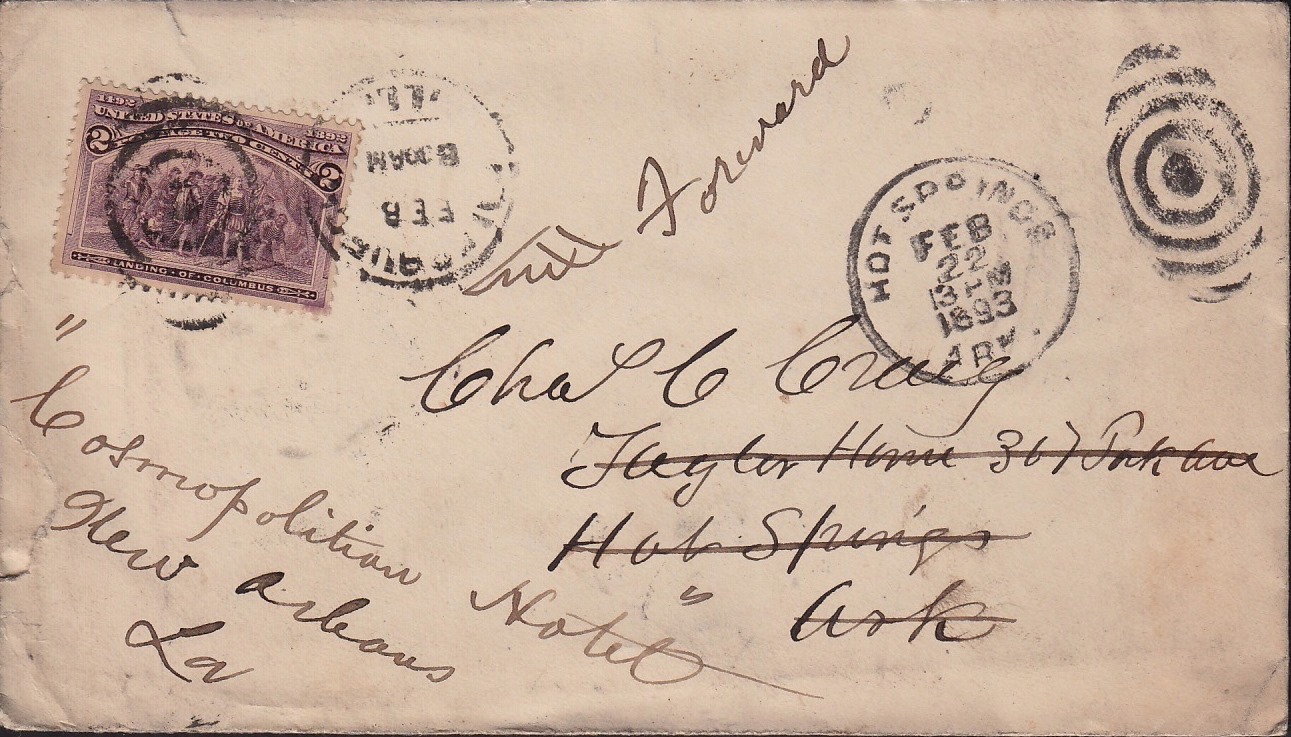 1492
1892
UNITED STATES OF AMERICA
POSTAGE TWO CENTS
2 2
LANDING · OF · COLUMBUS
FEB
8
8 30 AM
ILL.
Forward
HOT SPRINGS
FEB
22
3 PM
1893
ARK.
Chas C Craig
Taylor House 367 Park Ave
Hot Springs
Ark
"Cosmopolitian Hotel"
New Orleans
La